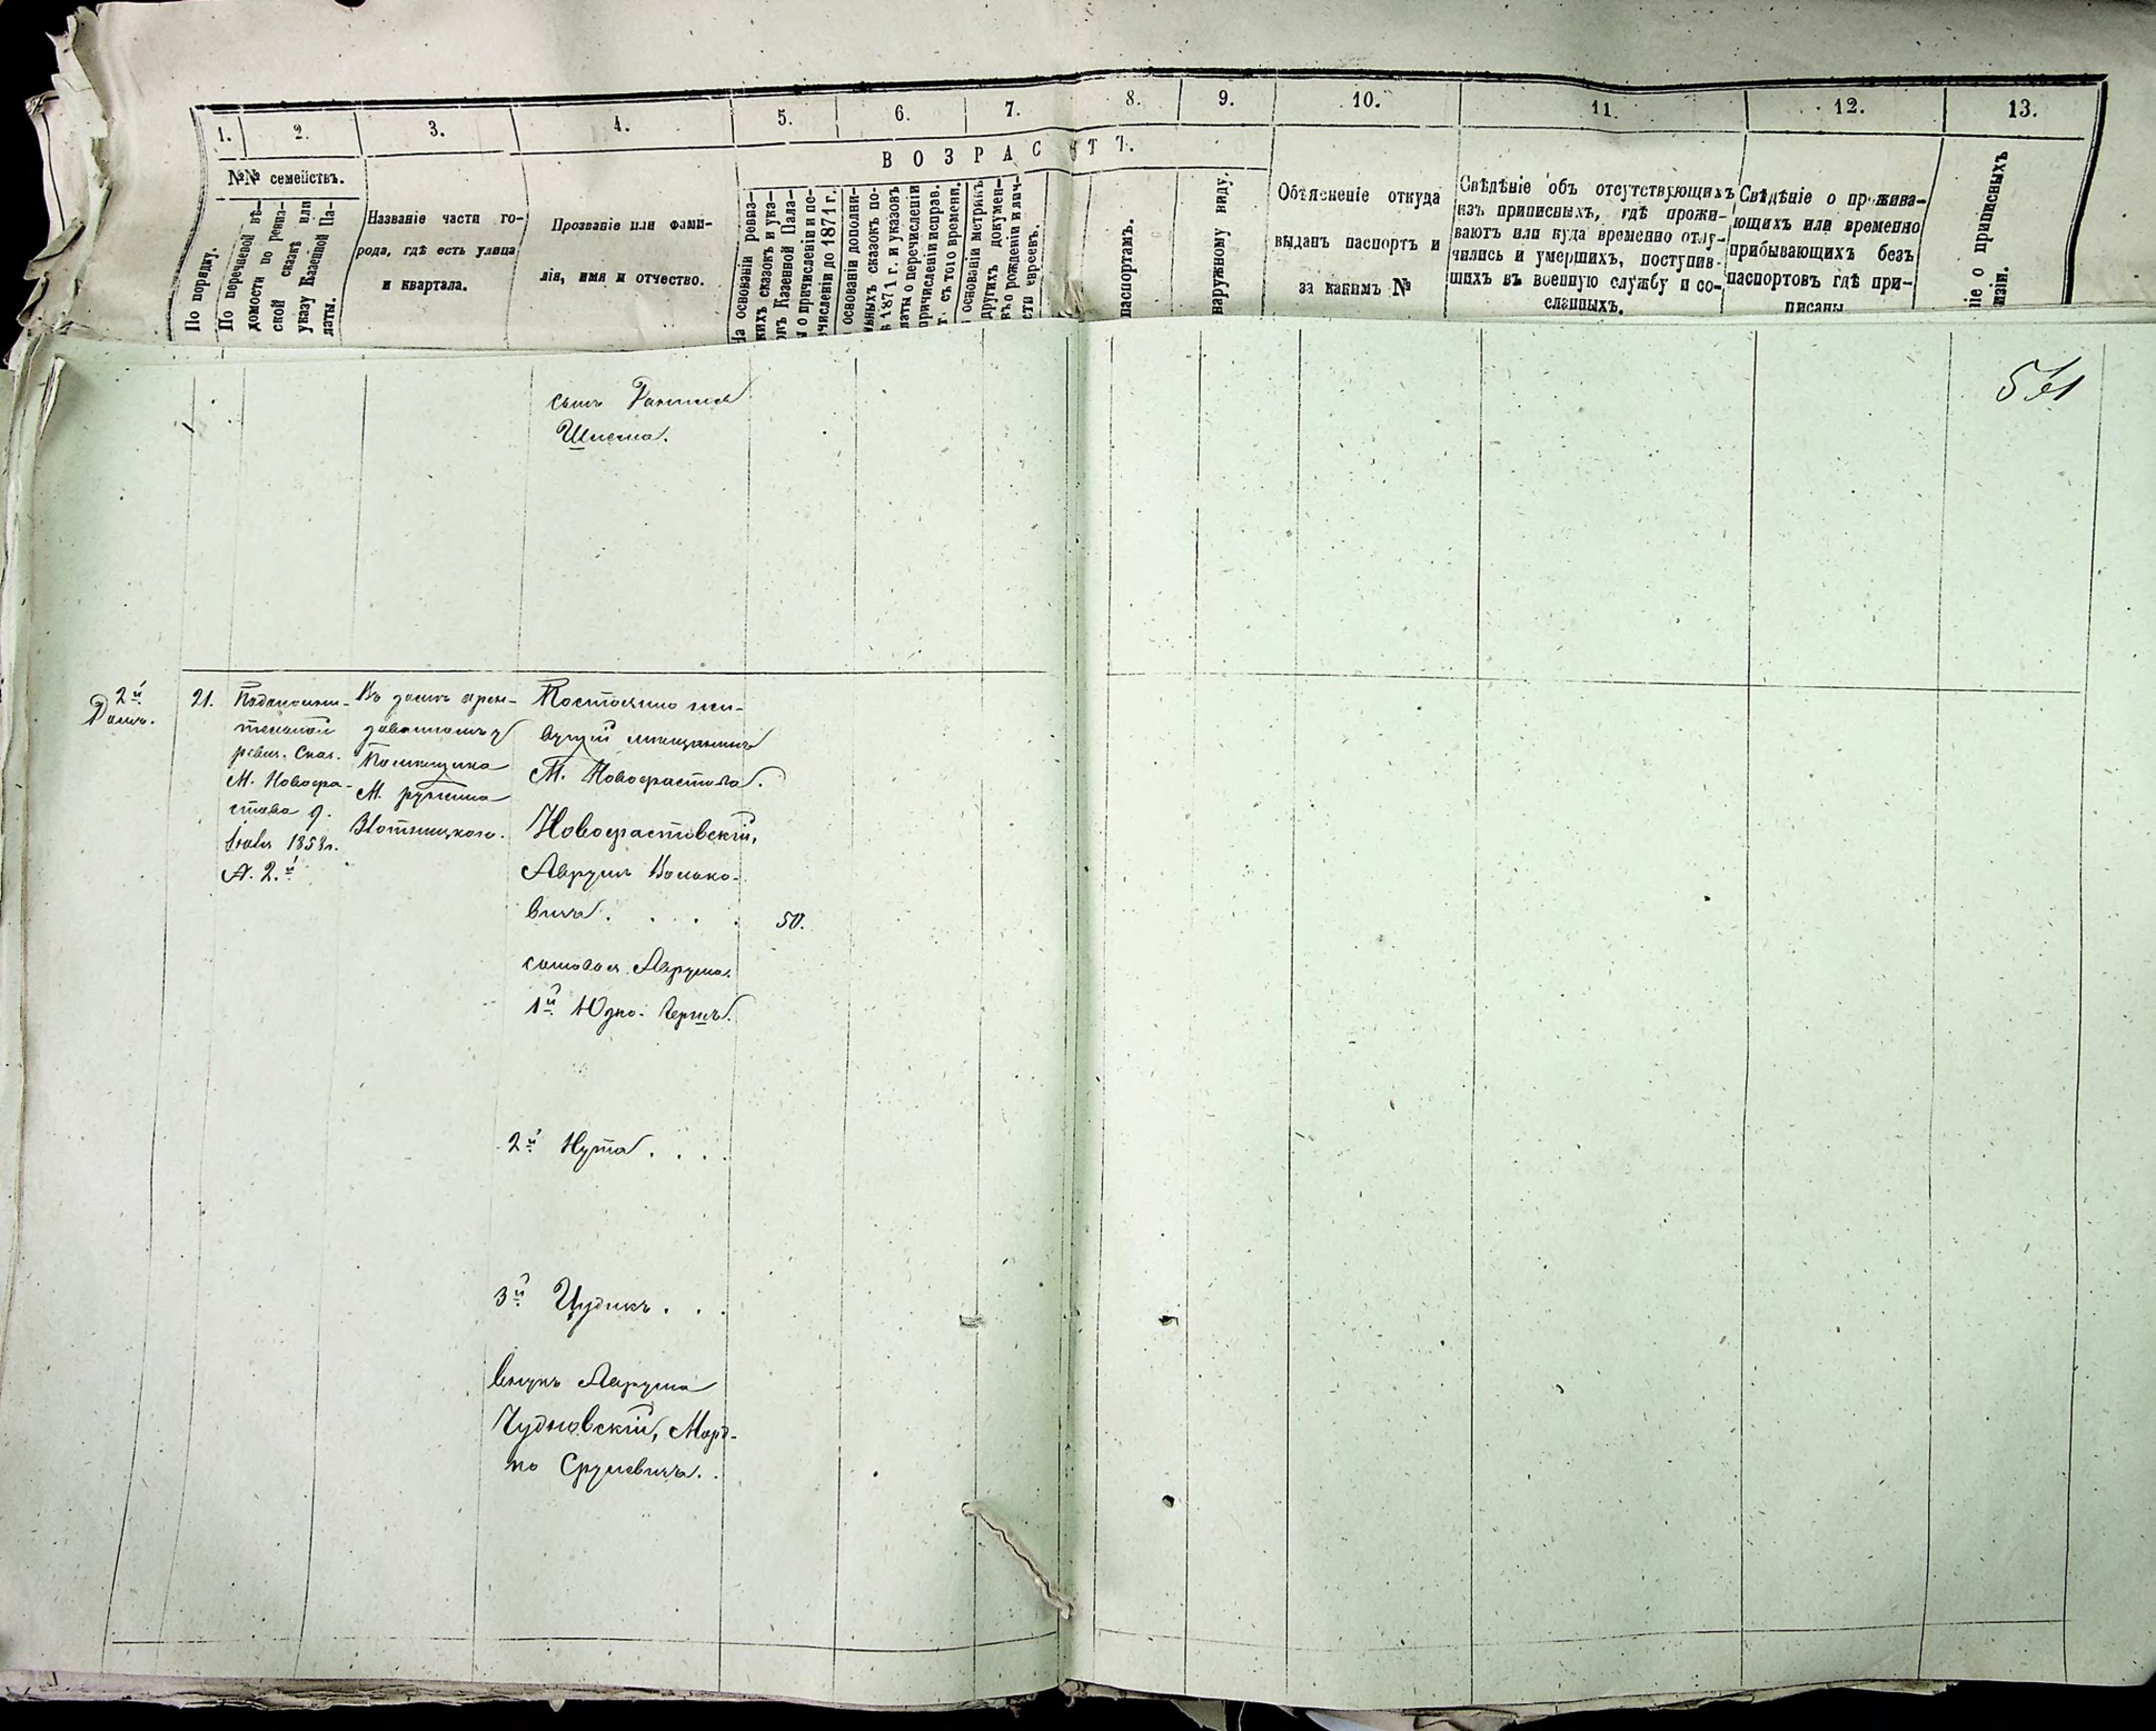 1.
2.
3.
4.
5.
6.
7.
8.
9.
10.
11.
12.
13.
ВОЗРАСТЪ.
№№ семействъ.
По порядку.
По перечневой вѣ-
домости по ревиз-
ской сказкѣ или
указу Казенной Па-
латы.
Названіе части го-
рода, гдѣ есть улица
и квартала.
Прозваніе или фами-
лія, имя и отчество.
На основаніи ревиз-
скихъ сказокъ и ука-
зовъ Казенной Пала-
ты о причисленіи и пе-
речисленіи до 1871 г.
основаніи дополни-
тельныхъ сказокъ по-
1871 г. и указовъ
латы о перечисленіи
причисленіи исправ.
съ того времени.
основаніи метрикъ
другихъ докумен-
о рожденіи и лич-
сти евреевъ.
паспортамъ.
наружному виду.
Объясненіе откуда
выданъ паспортъ и
за какимъ №
Свѣдѣніе объ отсутствующихъ
изъ приписныхъ, гдѣ прожи-
ваютъ или куда временно отлу-
чились и умершихъ, поступив-
шихъ въ военную службу и со-
сланныхъ.
Свѣдѣніе о прожива-
ющихъ или временно
прибывающихъ безъ
паспортовъ гдѣ при-
писаны
ніе о приписныхъ
сынъ
2й
Домъ.
21.
ревиз. Сказ.
М. Новофа-
стова 9.
1858 г.
№. 2.й
Въ домѣ арен-
Помещика
М. Ружина
Злотницкого.
Постоянно жи-
вущій мещанинъ
М. Новофастова.
Новофастовскій,
Аврумъ Волько-
вичъ. . . . .
50.
сыновья Аврума.
1й Юдко-Гершъ.
2й Нута. . . .
3й Цудикъ. . .
внукъ Аврума
Чудновскій, Морд-
ко Срулевичъ. .